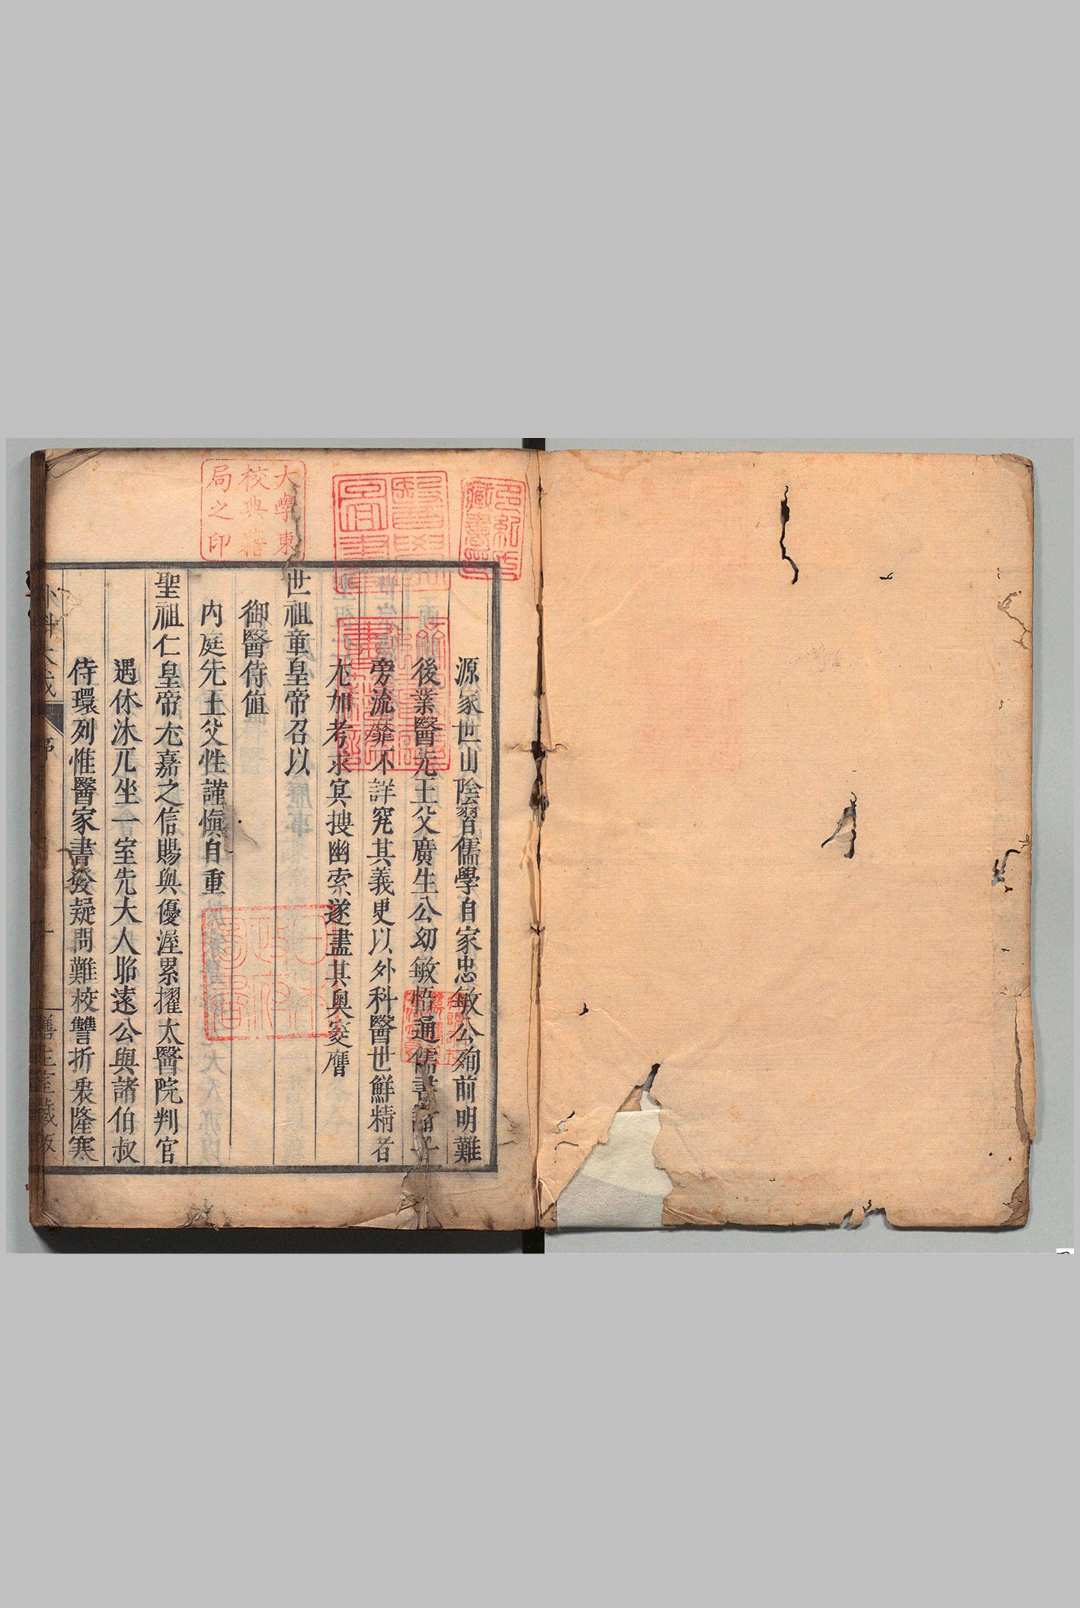 源家世山陰習儒學自家忠敏公殉前明難
後業醫先王父廣生公幼敏悟通儒書諸子
旁流靡不詳究其義更以外科醫世鮮精者
尤加考求冥搜幽索遂盡其奧窔膺
世祖章皇帝召以
御醫侍值
內庭先王父性謹慎自重
聖祖仁皇帝尤嘉之信賜與優渥累擢太醫院判官
遇休沐兀坐一室先大人昭遠公與諸伯叔
侍環列惟醫家書發疑問難校讐折衷隆寒
序
善生堂藏板
大學東
校典籍
局之印